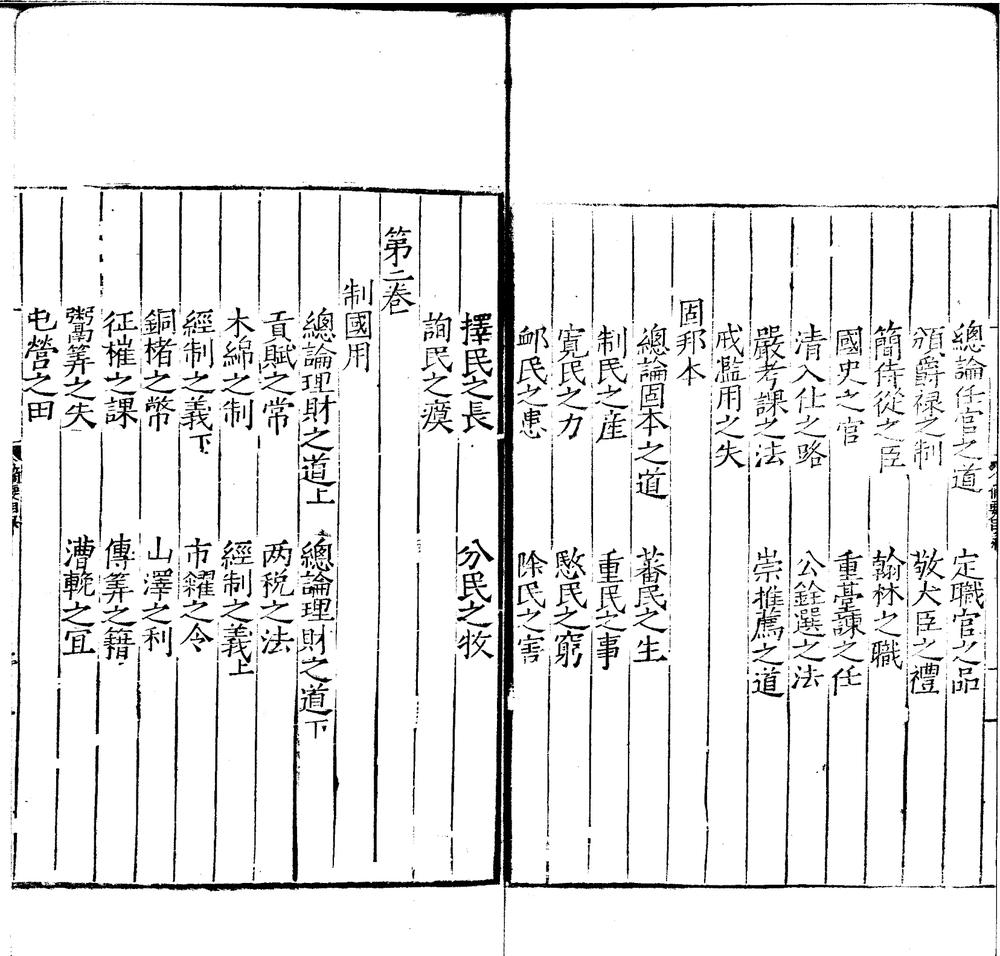 總論任官之道　定職官之品
頒爵禄之制　敬大臣之禮
簡侍從之臣　翰林之職
國史之官　重臺諫之任
清入仕之路　公銓選之法
嚴考課之法　崇推薦之道
戒濫用之失
固邦本
總論固本之道　蕃民之生
制民之産　重民之事
寛民之力　愍民之窮
䘏民之患　除民之害
擇民之長　分民之牧
詢民之瘼
第二卷
制國用
總論理財之道上　總論理財之道下
貢賦之常　兩税之法
木綿之制　經制之義上
經制之義下　市糴之令
銅楮之幣　山澤之利
征榷之課　傳筭之籍
鬻筭之失　漕輓之宜
屯營之田